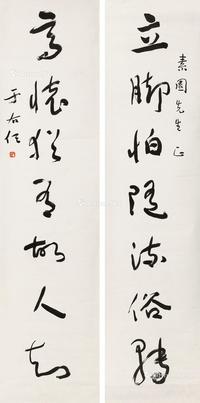 立脚怕随流俗转
素园先生正
高怀犹有故人知
于右任